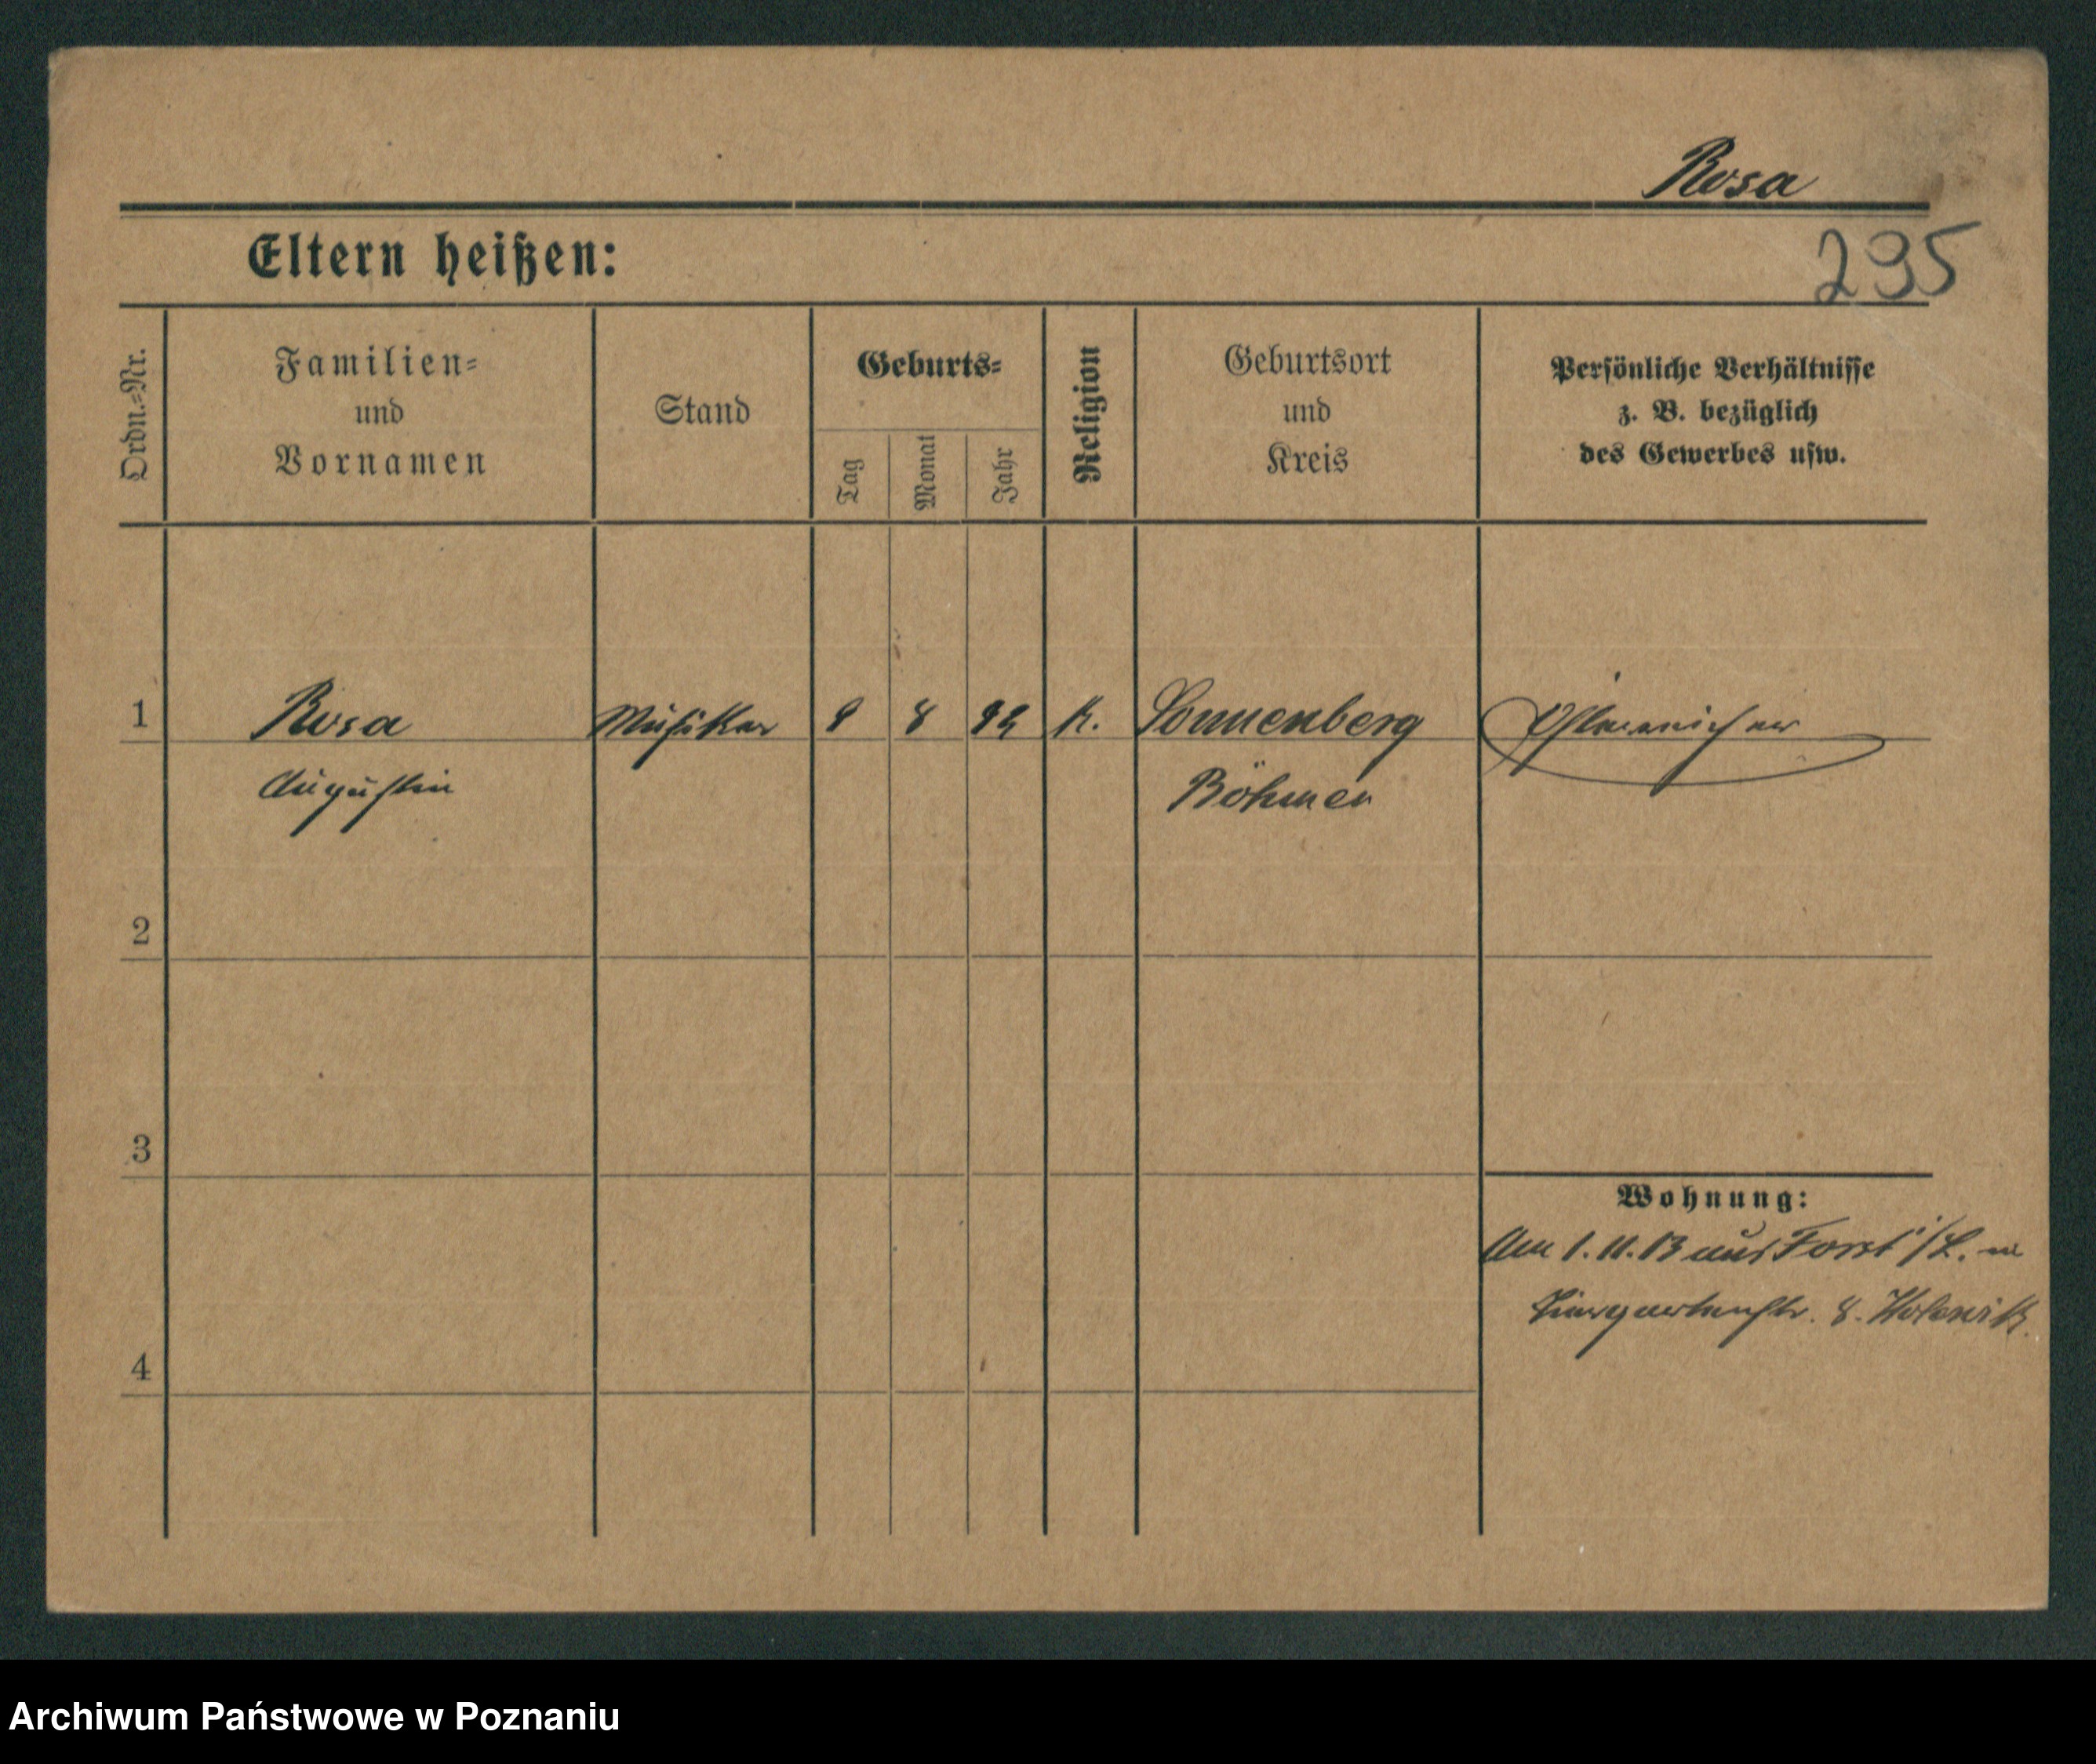 Rosa
295
Eltern heißen:
Ordn.-Nr.
Familien-
und
Vornamen
Stand
Geburts-
Tag
Monat
Jahr
Religion
Geburtsort
und
Kreis
Persönliche Verhältnisse
z. B. bezüglich
des Gewerbes usw.
1 Rosa Musiker 9 8 92 K. Sonnenberg Österreicher
Augustin Böhmen
2
3
Wohnung:
Am 1. 11. 13 aus Forst i/L. in
Tiergartenstr. 8.
4
Archiwum Państwowe w Poznaniu